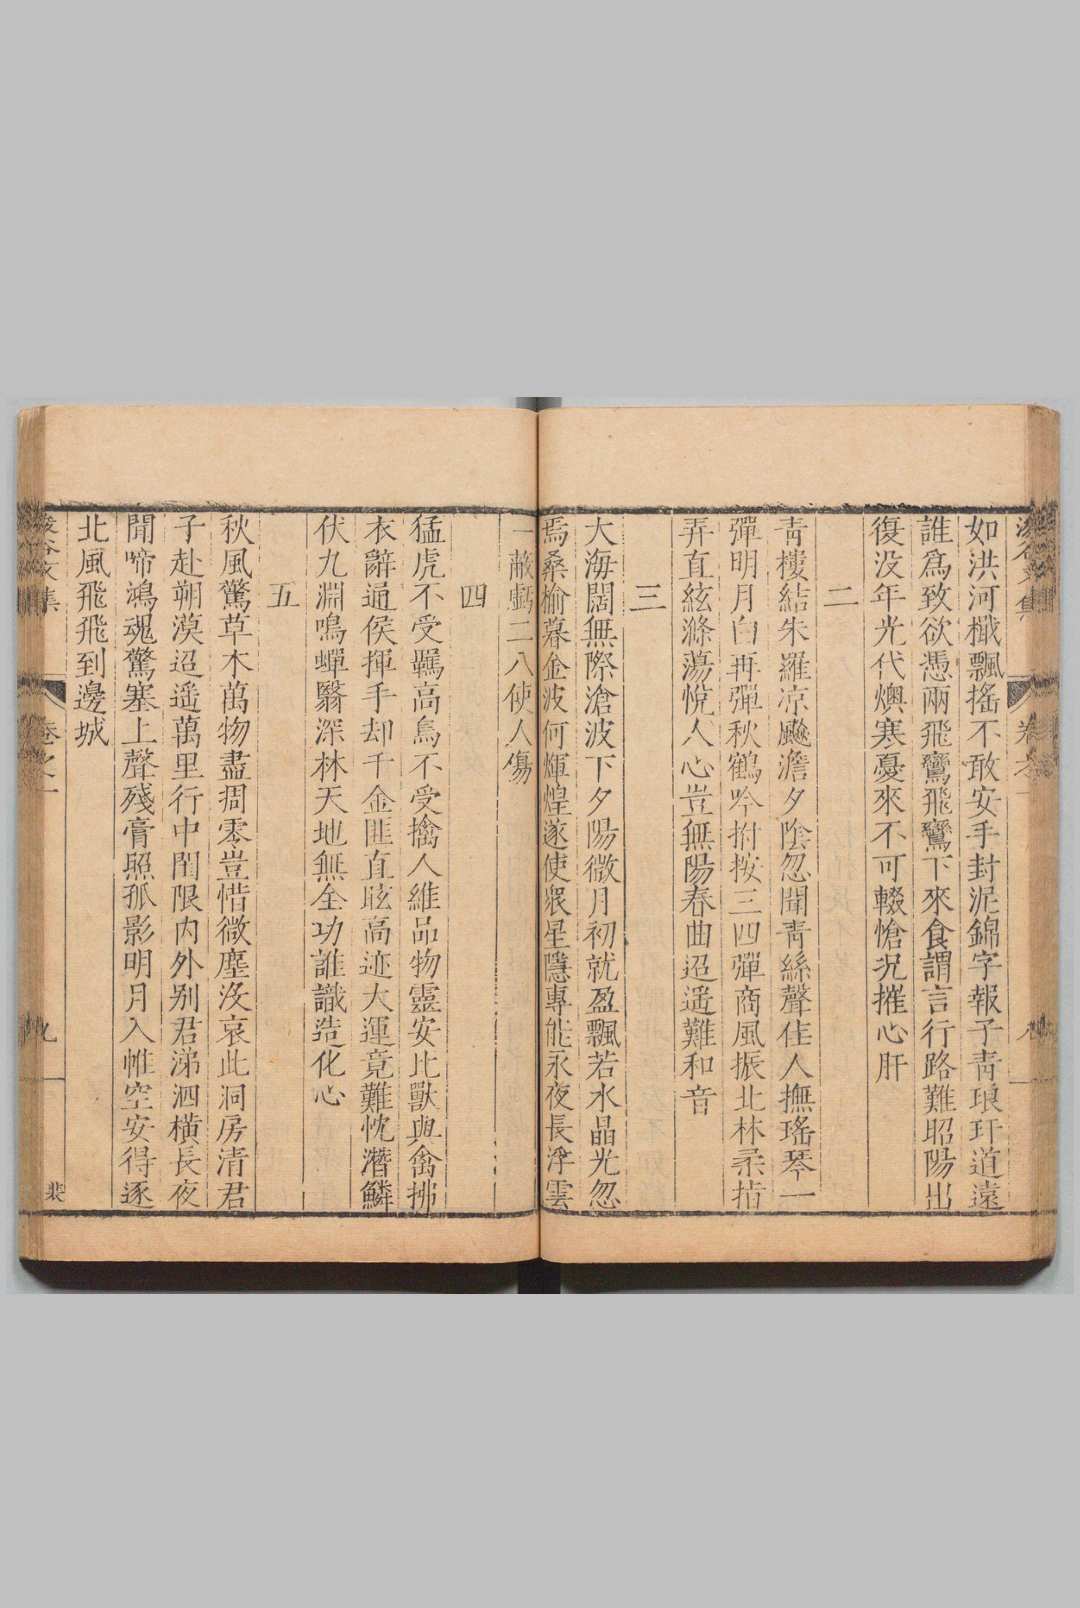 如洪河檝飄搖不敢安手封泥錦字報子靑琅玕道遠
誰為致欲憑兩飛鸞飛鸞下來食謂言行路難昭陽出
復没年光代燠寒憂來不可輟愴况摧心肝
二
靑樓結朱羅凉飈澹夕陰忽聞靑絲聲佳人撫瑤琴一
彈明月白再彈秋鶴吟拊按三四彈商風振北林柔指
弄直絃滌蕩悅人心豈無陽春曲迢遥難和音
三
大海闊無際滄波下夕陽微月初就盈飄若水晶光忽
焉桑榆暮金波何煇煌遂使衆星隱專能永夜長浮雲
一蔽虧二八使人傷
四
猛虎不受羈高鳥不受擒人維品物靈安比獸與禽拂
衣辭通侯揮手却千金匪直眩高迹大運竟難忱潛鱗
伏九淵鳴蟬翳深林天地無全功誰識造化心
五
秋風驚草木萬物盡凋零豈惜微塵没哀此洞房清君
子赴朔漠迢遥萬里行中閨限内外别君涕泗横長夜
聞啼鴻魂驚塞上聲殘膏照孤影明月入帷空安得逐
北風飛飛到邊城
卷之一
九
裴